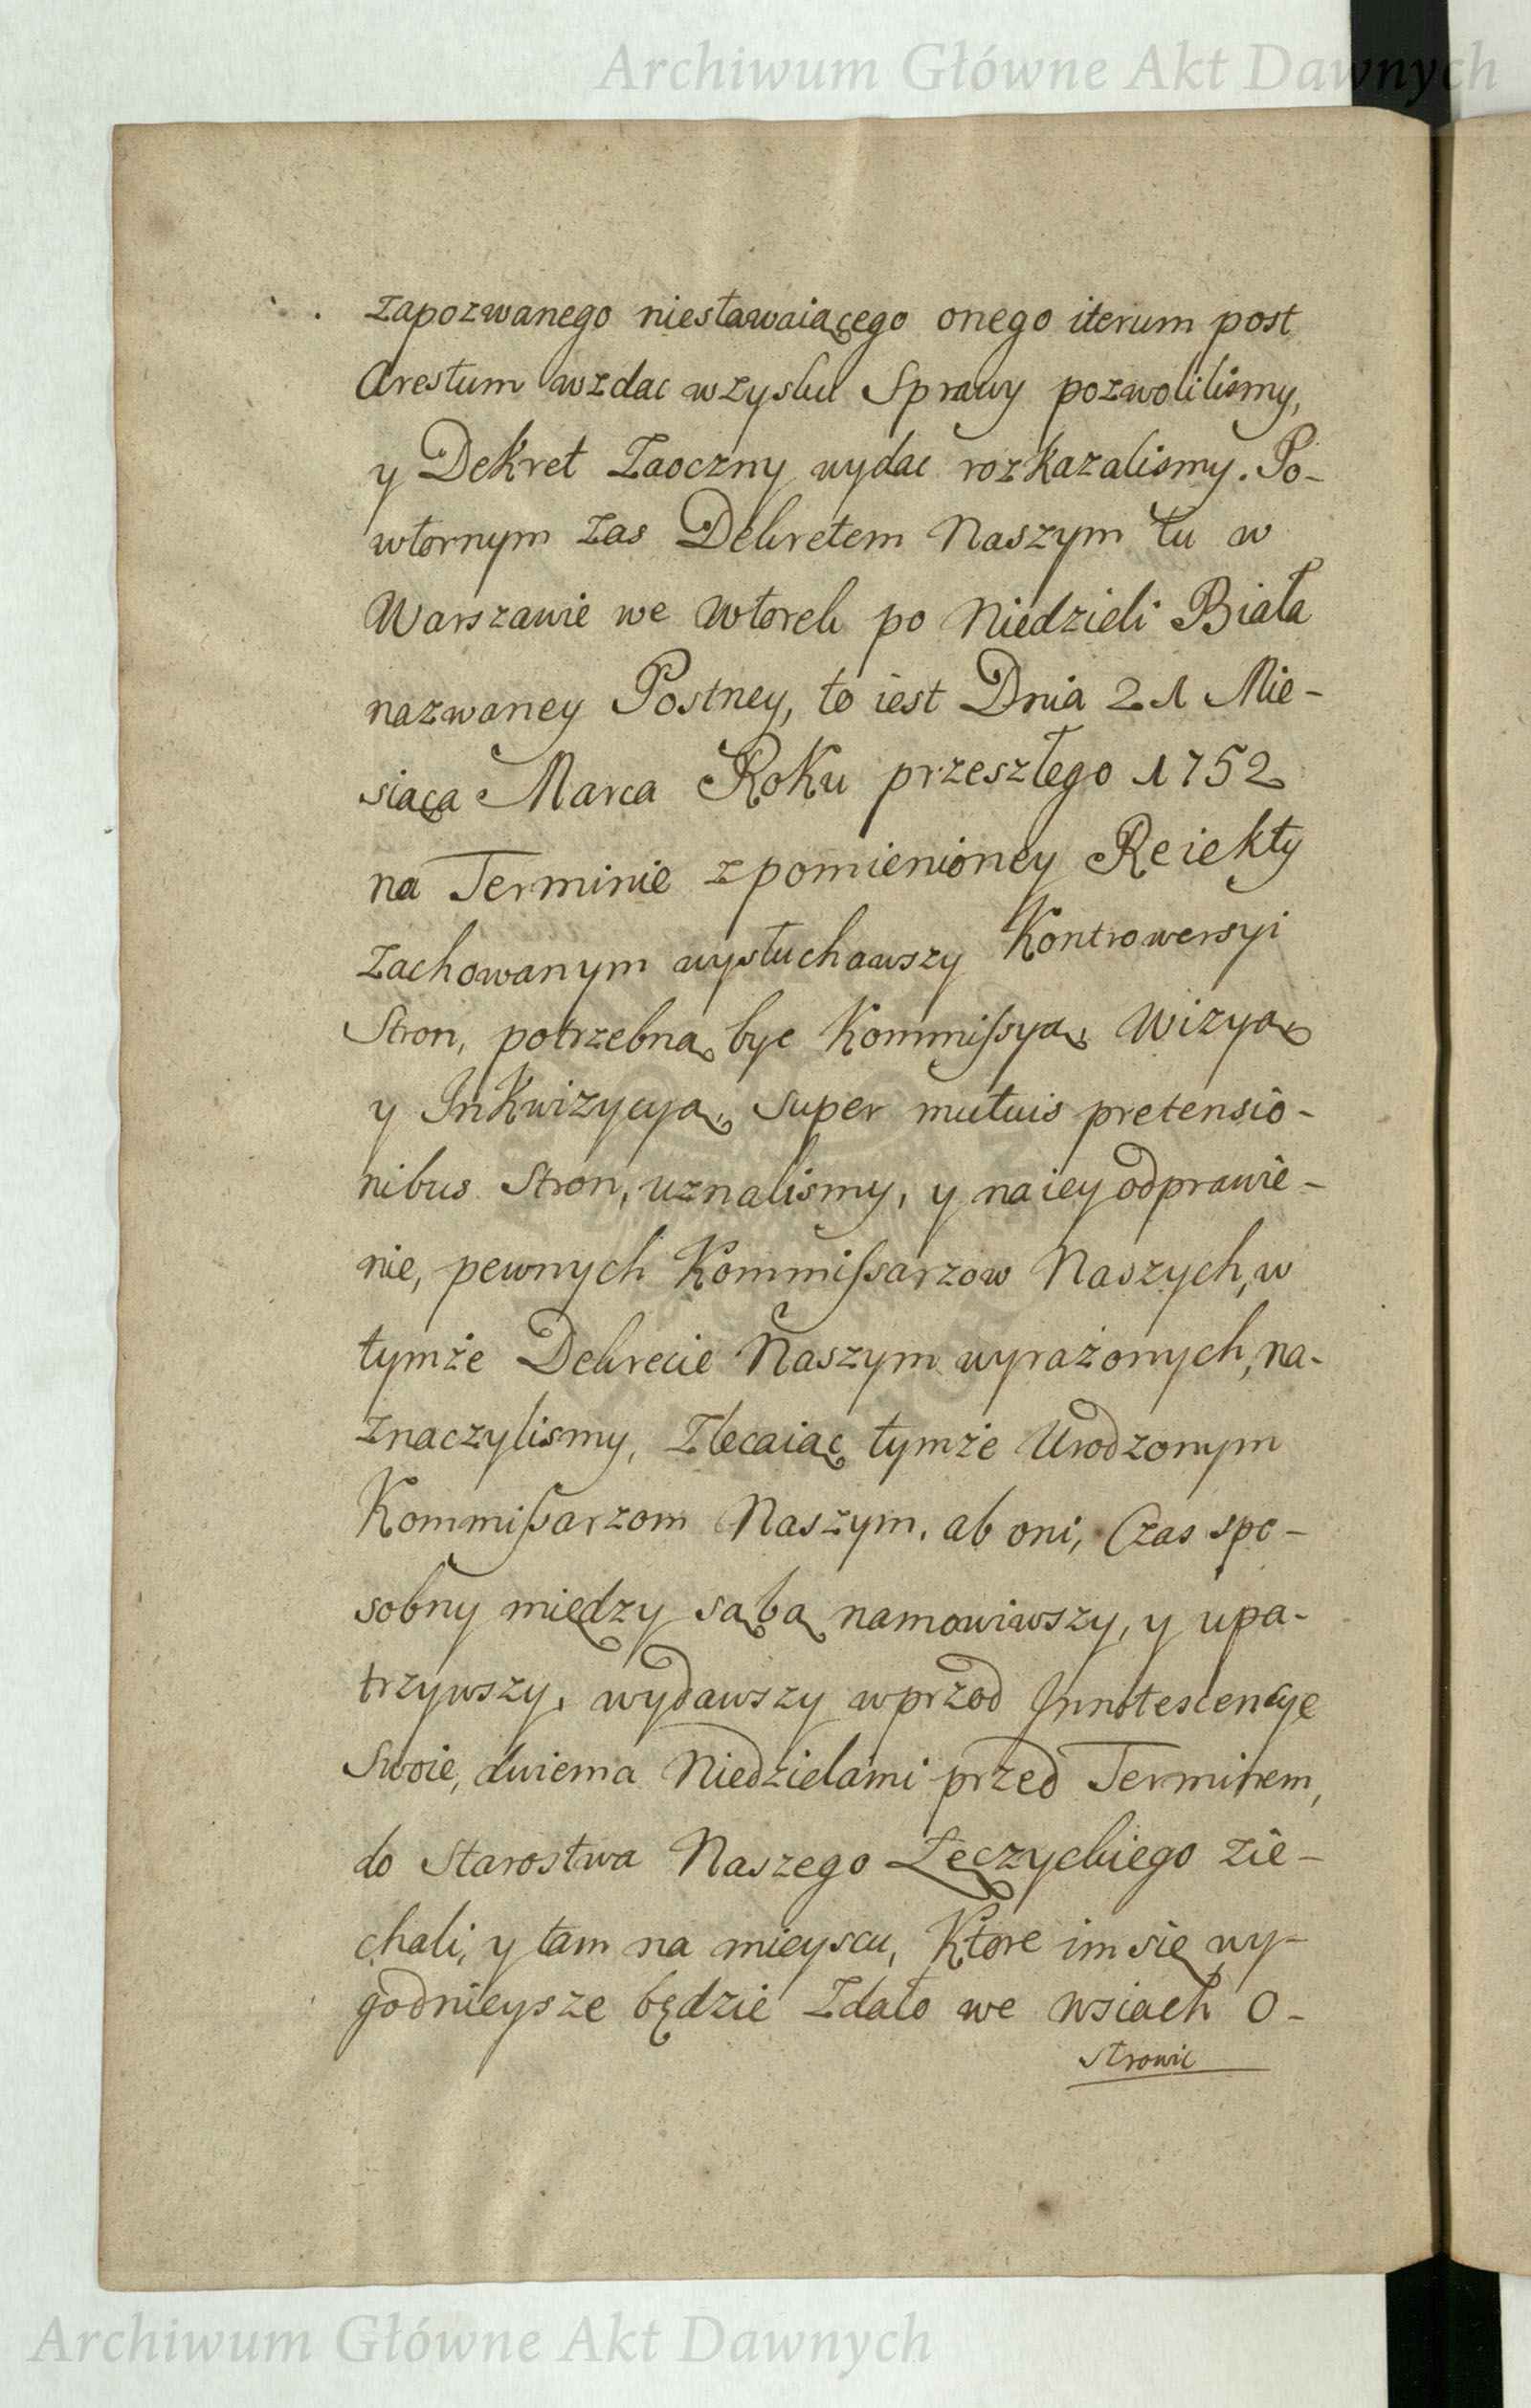 Archiwum Główne Akt Dawnych
zapozwanego niestawaiącego onego iterum post
Arestum wzdac wzysku Sprawy pozwolilismy,
y Dekret Zaoczny wydac rozkazalismy. Po-
wtornym zas Dekretem Naszym tu w
Warszawie we Wtorek po Niedzieli Biała
nazwaney Postney, to iest Dnia 21 Mie-
siąca Marca Roku przeszłego 1752
na Terminie z pomienioney Reiekty
zachowanym wysłuchawszy Kontrowersyi
Stron, potrzebną byc Kommiſsyą, Wizyą
y Inkwizycyą, super mutuis pretensio-
nibus Stron, uznalismy, y na iey odprawie-
nie, pewnych Kommiſsarzow Naszych, w
tymże Dekrecie Naszym wyrażonych, na-
znaczylismy, Zlecaiąc tymże Urodzonym
Kommiſsarzom Naszym, ab oni, Czas spo-
sobny między sąbą namowiwszy, y upa-
trzywszy, wydawszy wprzod Innotescencye
Swoie, dwiema Niedzielami przed Terminem,
do Starostwa Naszego Łęczyckiego zie-
chali, y tam na mieyscu, Ktore im się wy-
godnieysze będzie Zdało we wsiach O-
strowie
Archiwum Główne Akt Dawnych